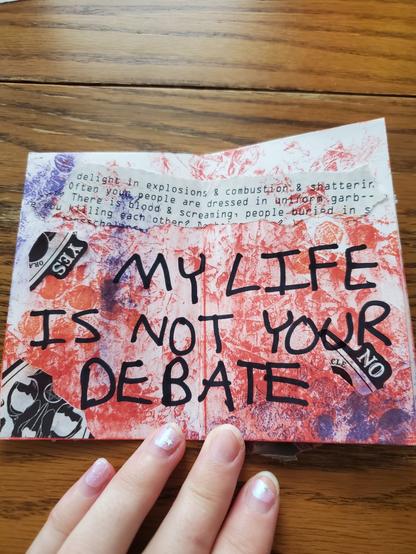 delight in explosions & combustion & shatterin
Often your people are dressed in uniform garb--
There is blood & screaming, people buried in s
you killing each other?
YES
ORA
MY LIFE
IS NOT YOUR
NO
CLE
DEBATE